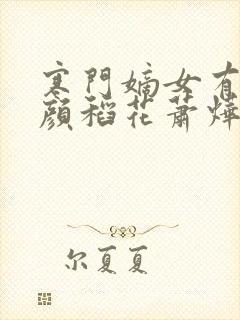 寒門嫡女有
顏稻花蕭燁
尔夏夏